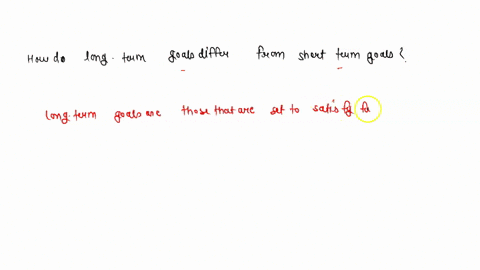 How do long-term goals differ from short term goals?
long-term goals are those that are set to satisfy